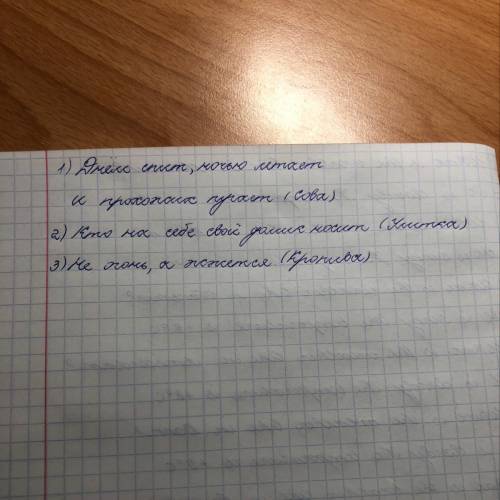 1) Днём спит, ночью летает
и прохожих пугает (Сова)
2) Кто на себе свой домик носит (Улитка)
3) Не огонь, а жжется (Кропива)